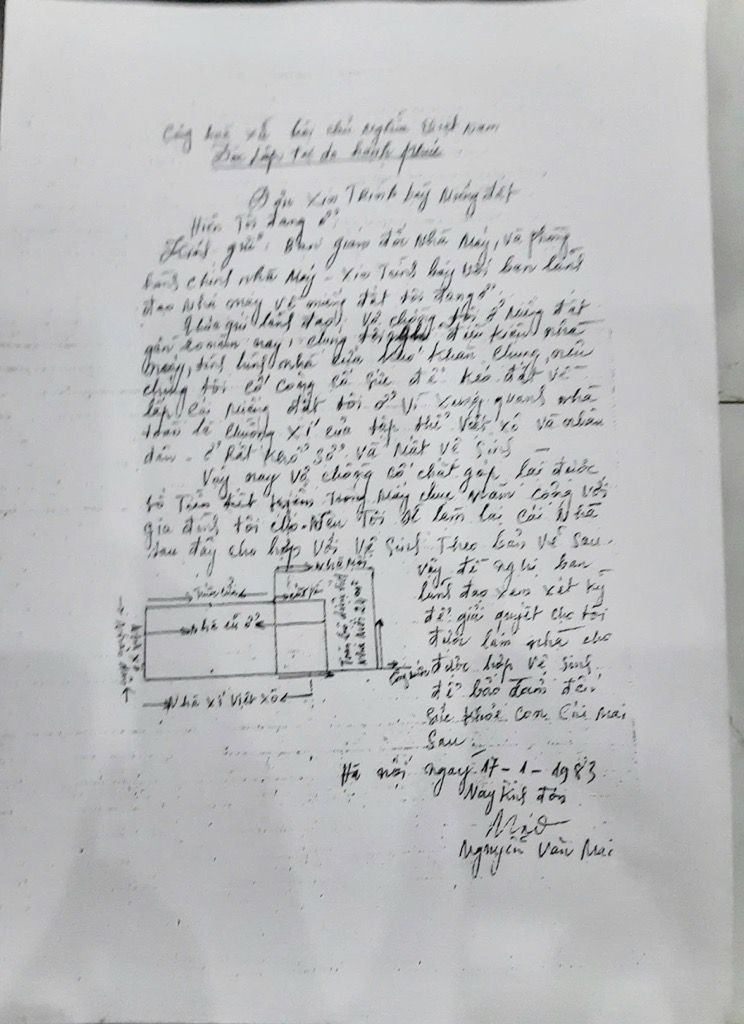 Cộng hoà xã hội chủ nghĩa Việt Nam
Độc lập tự do hạnh phúc
Đơn xin Trình bày Miếng đất
Hiện Tôi đang ở
Kính gửi: Ban giám đốc Nhà Máy, và phòng
hành chính nhà Máy - Xin Trình bày với ban lãnh
đạo Nhà máy về miếng đất tôi đang ở.
Thưa quí lãnh đạo, Vợ chồng tôi ở Miếng đất
gần 20 năm nay, cũng điều kiện nhà
máy, tình hình nhà cửa khó khăn chung, nên
chúng tôi cố công cố sức để kéo đất về
lấp cái Miếng đất tôi ở Vì xung quanh nhà
toàn là chuồng xí của tập thể Việt xô và nhân
dân - ở Rất Khổ Sở Và Mất Vệ Sinh -
Vậy nay Vợ chồng cố chắt góp lại được
số Tiền tiết kiệm Trong Máy chục năm công với
gia đình tôi cho. Nên Tôi sẽ làm lại Cái Nhà
sau đây cho hợp Với Vệ Sinh Theo bản Vẽ sau
Nhà Mới
Nhà cũ ở
Nhà Mới 24 m²
Nhà xí Việt Xô
Nhà xí
Nhân dân
Vậy đề nghị ban
lãnh đạo xem xét kỹ
để giải quyết cho tôi
được làm nhà cho
được hợp Vệ sinh
để bảo đảm đến
sức khỏe con Cái Mai
Sau
Hà nội ngày 17-1-1983
Này kính đơn
Nguyễn Văn Mai